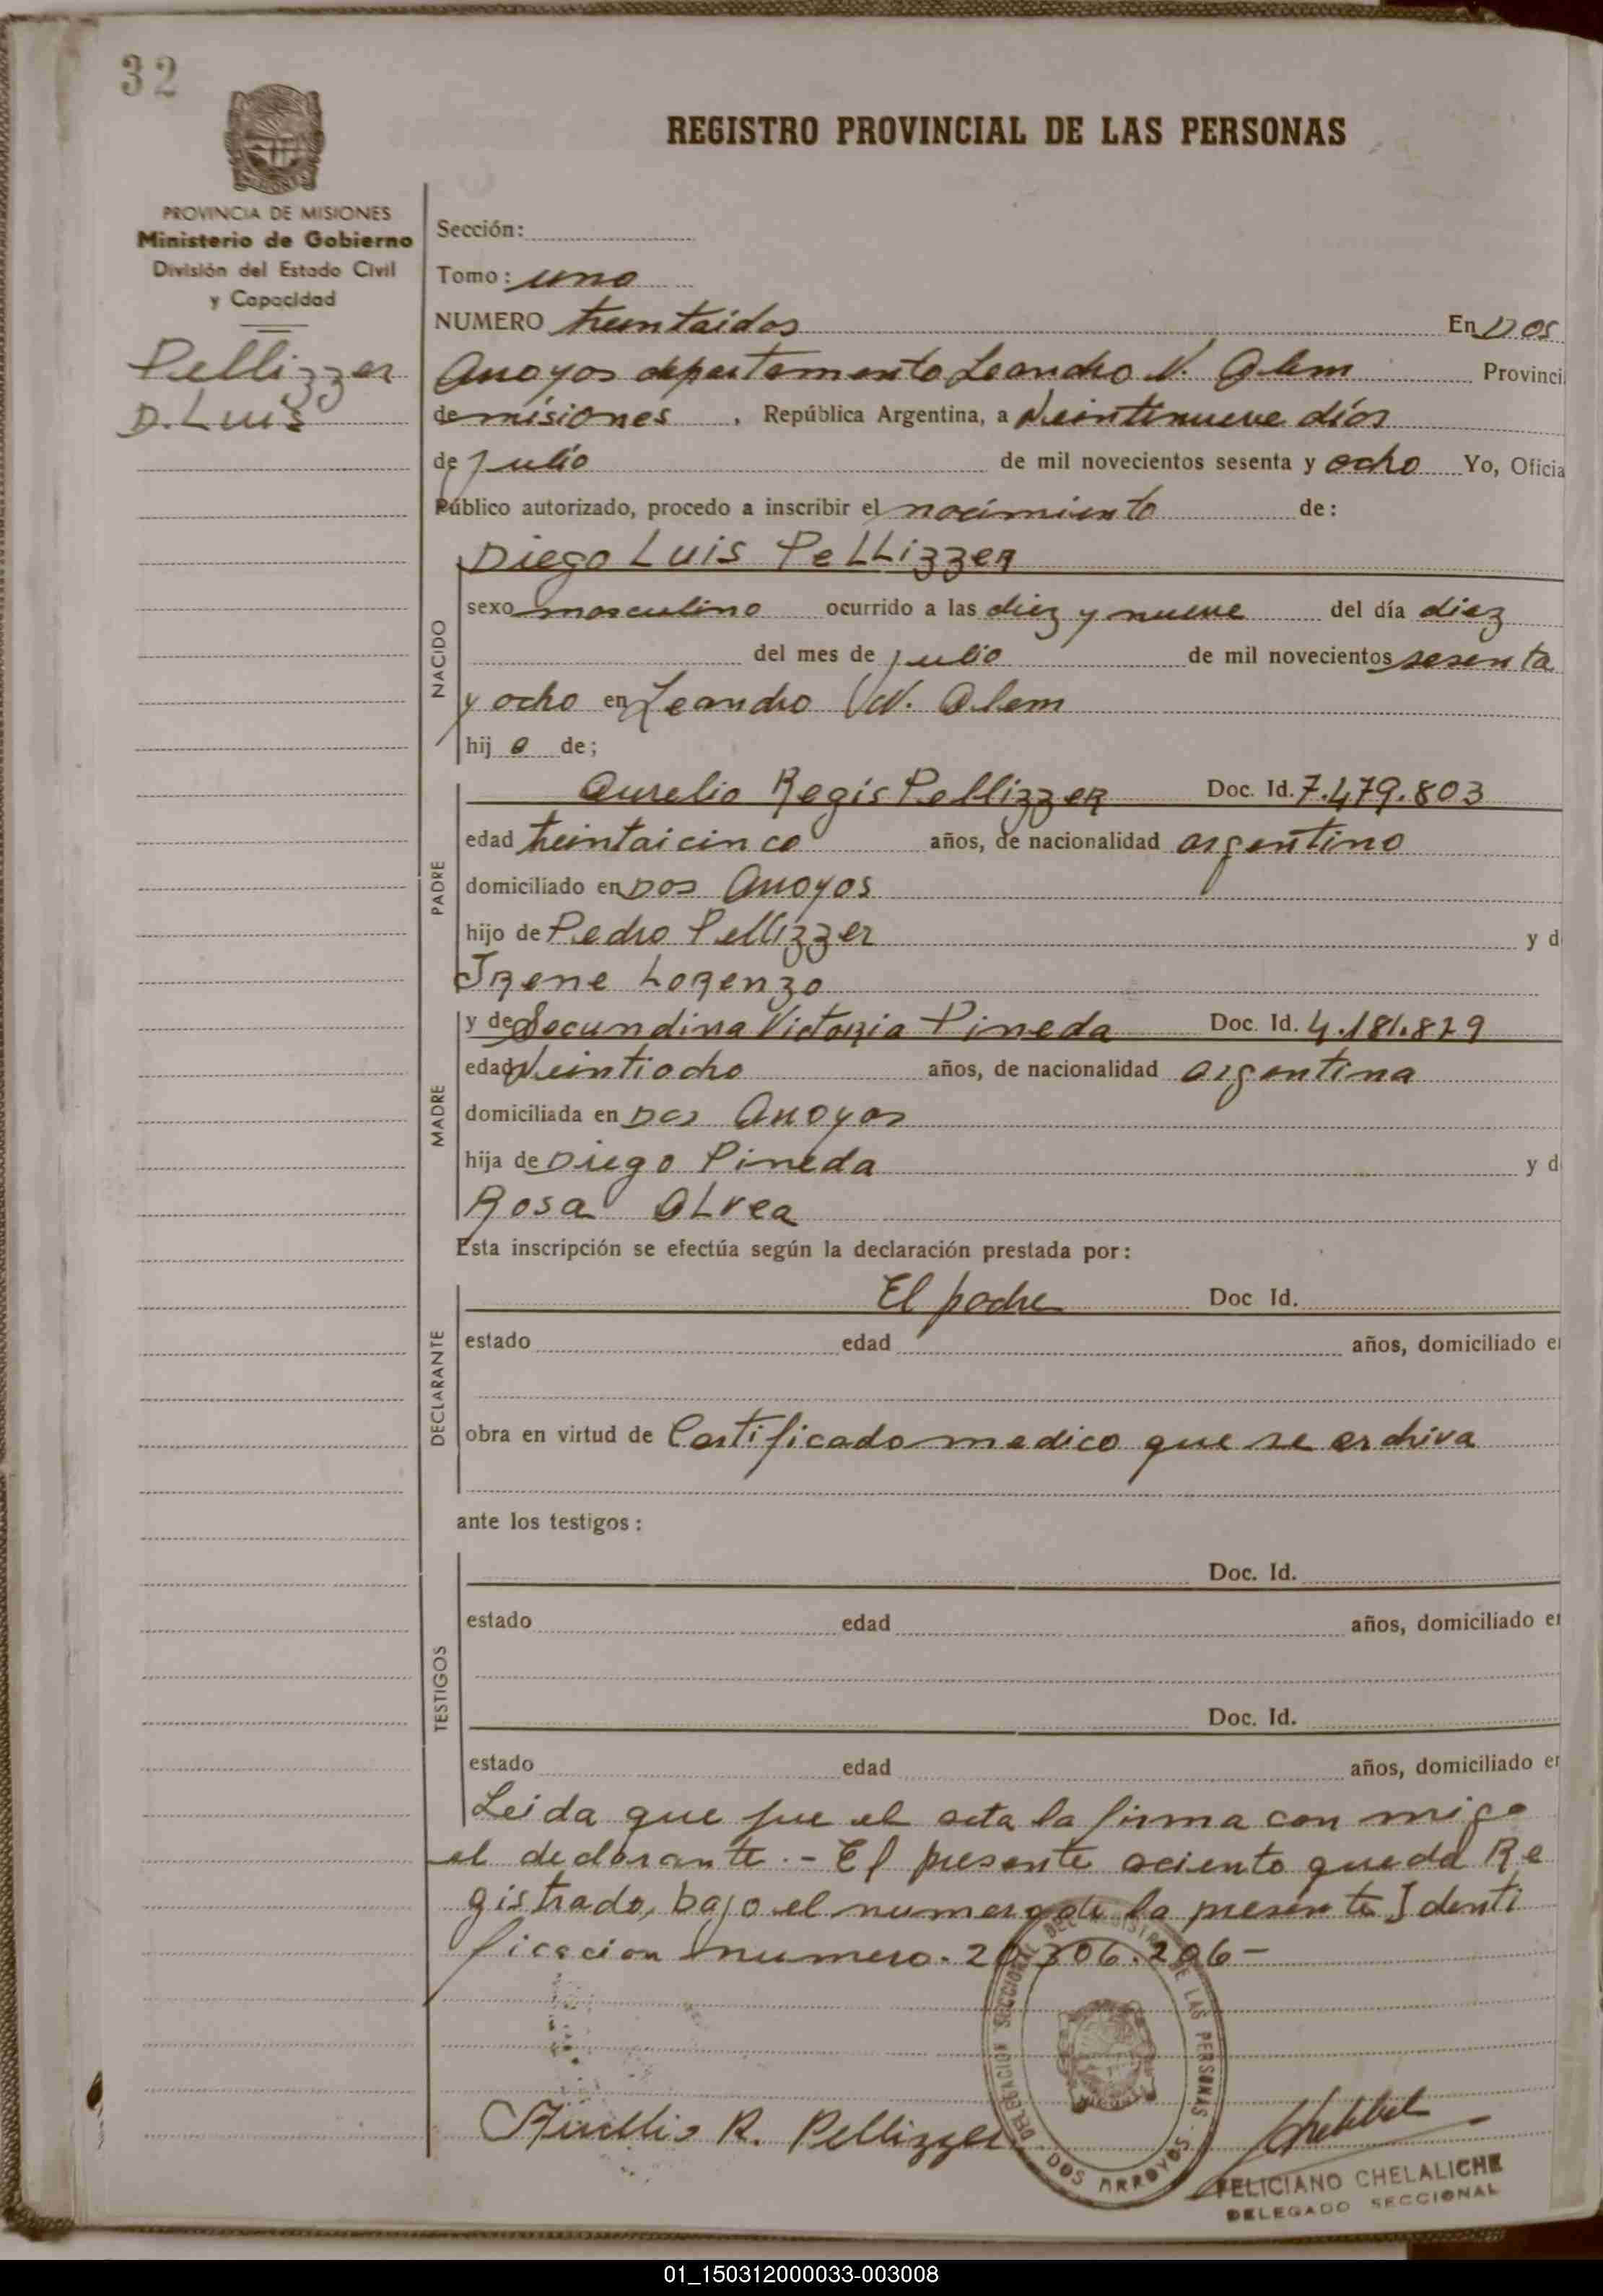 32
REGISTRO PROVINCIAL DE LAS PERSONAS
PROVINCIA DE MISIONES
Ministerio de Gobierno
División del Estado Civil
y Capacidad
Pellizzer
D. Luis
Sección:
Tomo: uno
NUMERO treintaidos En Dos
Arroyos departamento Leandro N. Alem Provinci
de misiones, República Argentina, a Veintinueve días
de julio de mil novecientos sesenta y ocho Yo, Oficia
Público autorizado, procedo a inscribir el nacimiento de:
NACIDO
Diego Luis Pellizzer
sexo masculino ocurrido a las diez y nueve del día diez
del mes de julio de mil novecientos sesenta
y ocho en Leandro N. Alem
hijo de;
PADRE
Aurelio Regis Pellizzer Doc. Id. 7.479.803
edad treintaicinco años, de nacionalidad argentino
domiciliado en Dos Arroyos
hijo de Pedro Pellizzer y d
Irene Lorenzo
MADRE
y de Secundina Victoria Pineda Doc. Id. 4.181.829
edad Veintiocho años, de nacionalidad argentina
domiciliada en Dos Arroyos
hija de Diego Pineda y d
Rosa Olvea
Esta inscripción se efectúa según la declaración prestada por:
DECLARANTE
El padre Doc Id.
estado edad años, domiciliado e
obra en virtud de Certificado medico que se archiva
ante los testigos:
TESTIGOS
Doc. Id.
estado edad años, domiciliado e
Doc. Id.
estado edad años, domiciliado e
Leida que fue el acta la firma con migo
el declarante.- El presente aciento queda Re
gistrado, bajo el numero de la presente Identi
ficacion numero. 20.306.206-
DELEGACION SECCIONAL DEL REGISTRO DE LAS PERSONAS
DOS ARROYOS
Aurelio R. Pellizzer
FELICIANO CHELALICHE
DELEGADO SECCIONAL
01_150312000033-003008